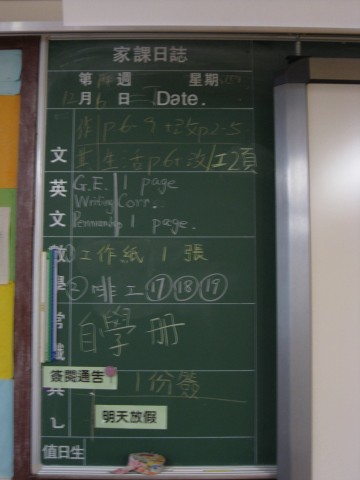 家課日誌
第 週 星期
12月6日 Date.
作 p.6-9 + 改 p2-5
文 p.6+改/工2頁
英 G.E. 1 page
Writing Corr.
文 Penmanship 1 page.
數 ① 工作紙 1 張
學 ② 工 ⑰ ⑱ ⑲
常 自學冊
識
簽閱通告 1份簽
其
明天放假
值日生